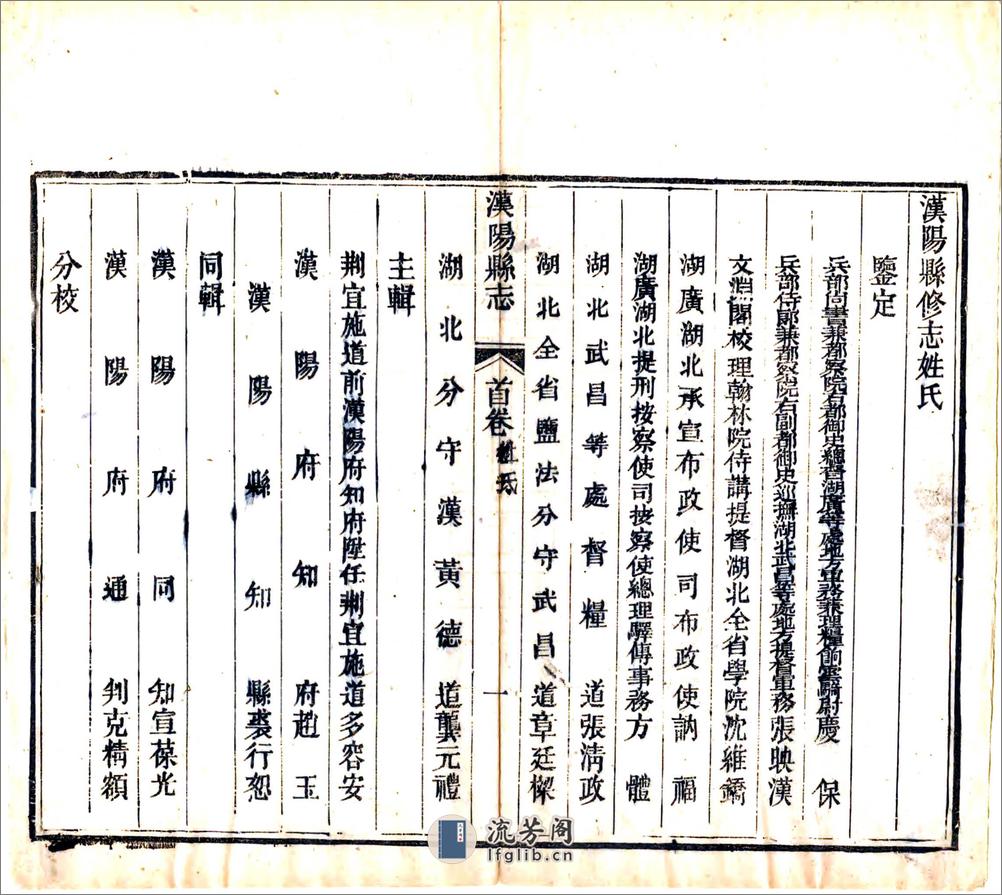 漢陽縣修志姓氏
鑒定
兵部尚書兼都察院右都御史總督湖廣等處地方軍務兼理糧餉雲騎尉慶保
兵部侍郎兼都察院右副都御史巡撫湖北武昌等處地方提督軍務張映漢
文淵閣校理翰林院侍講提督湖北全省學院沈維鐈
湖廣湖北承宣布政使司布政使訥福
湖廣湖北提刑按察使司按察使總理驛傳事務方體
湖北武昌等處督糧道張淸政
湖北全省鹽法分守武昌道章廷樑
漢陽縣志
首卷
姓氏
一
湖北分守漢黃德道龔元禮
主輯
荆宜施道前漢陽府知府陞任荆宜施道多容安
漢陽府知府趙玉
漢陽縣知縣裘行恕
同輯
漢陽府同知宣葆光
漢陽府通判克精額
分校
流芳阁
lfglib.cn